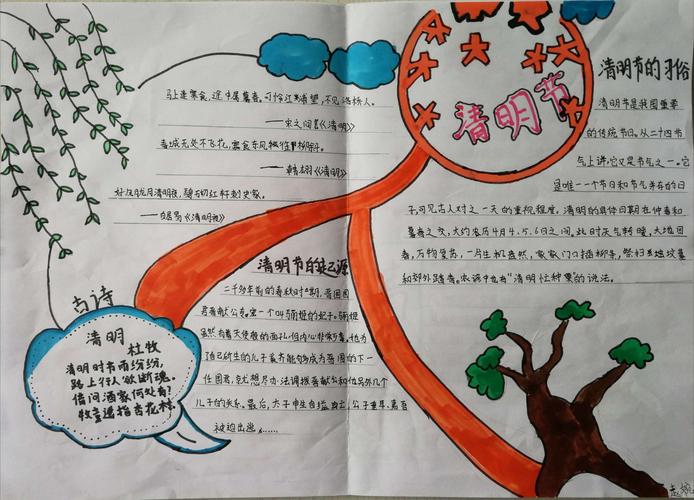 清明节
马上逢寒食,途中属暮春。可怜江浦望,不见洛桥人。
——宋之问《清明》
春城无处不飞花,寒食东风御柳斜。
——韩翃《清明》
好风胧月清明夜,碧砌红轩刺史家。
——白居易《清明夜》
古诗
清明
杜牧
清明时节雨纷纷,
路上行人欲断魂。
借问酒家何处有?
牧童遥指杏花村。
清明节的起源
二千多年前的春秋时期,晋国国
君晋献公有一个叫骊姬的妃子。骊姬
虽然有着天使般的面孔,但内心
了自己所生的儿子奚齐能够成为晋国的下一
任国君,就想尽办法调拨晋献公和他另外几个
儿子的关系。最后,太子申生自
被迫出逃……
清明节的习俗
清明节是我国重要
的传统节日。从二十四节
气上讲,它又是节气之一。它
是唯一一个节日和节气并存的日
子,可见古人对这一天的重视程度。清明的具体日期在仲春和
暮春之交,大约农历4月4、5、6日之间,此时天气转暖,大地回
春,万物复苏,一片生机盎然,家家门口插柳条,祭扫坟墓
和郊外踏青。农谚中也有“清明忙种粟”的说法。